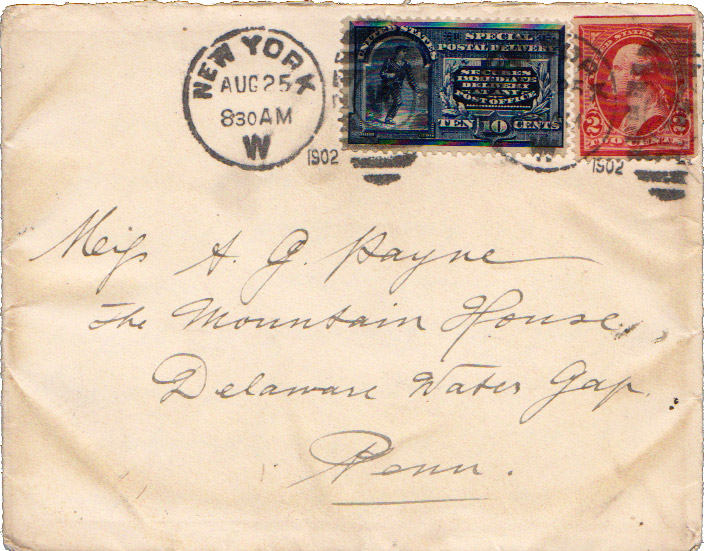 NEW YORK
AUG 25
830 AM
W
1902
UNITED STATES
SPECIAL
POSTAL DELIVERY
SECURES
IMMEDIATE
DELIVERY
AT ANY
POST OFFICE
TEN 10 CENTS
UNITED STATES
2
TWO CENTS
1902
Miss A. G. Payne
The Mountain House,
Delaware Water Gap.
Penn.